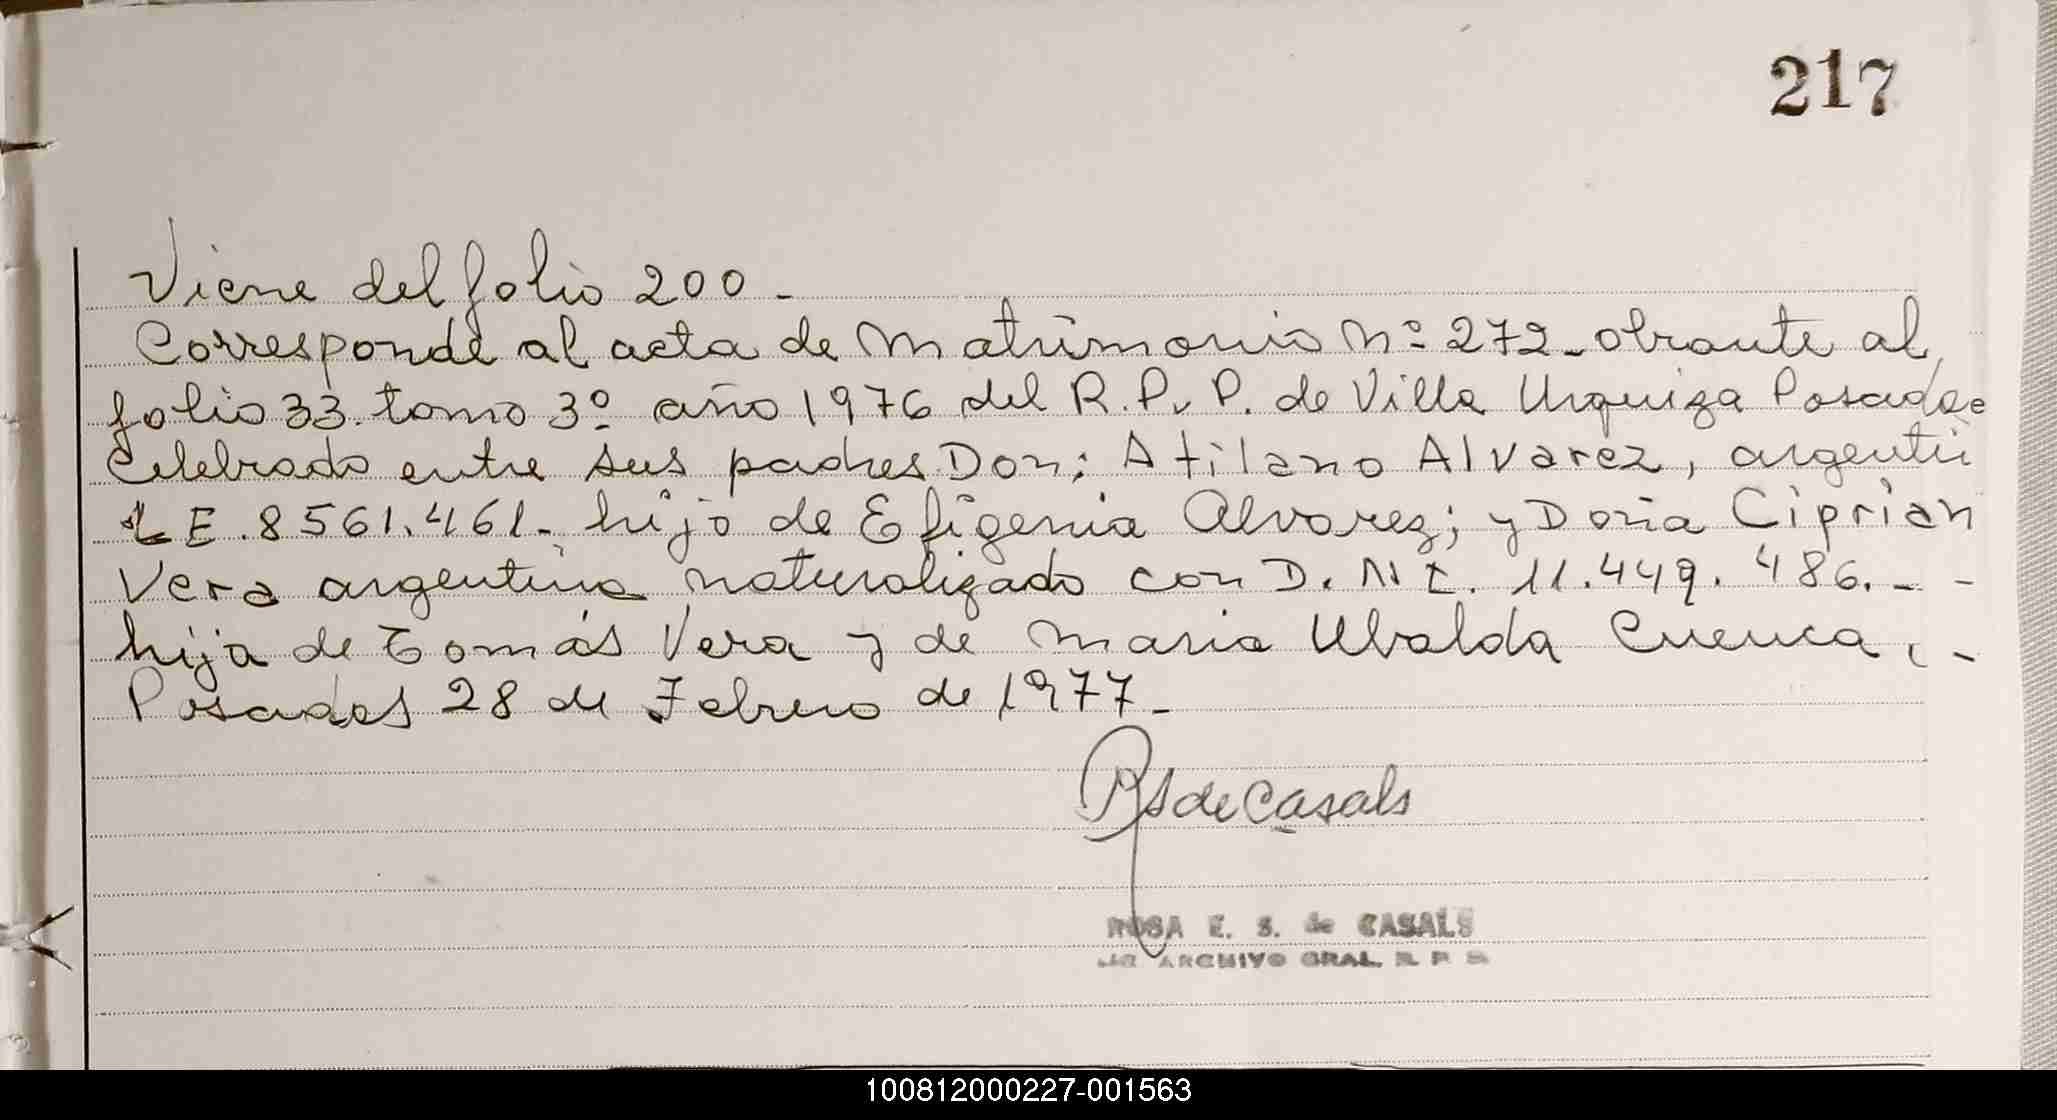 217
Viene del folio 200 -
Corresponde al acta de Matrimonio Nº 272 - obrante al
folio 33. tomo 3º año 1976 del R. P. P. de Villa Urquiza Posadas
Celebrado entre sus padres Don: Atilano Alvarez, argentin
L E. 8561.461 - hijo de Efigenia Alvarez; y Doña Ciprian
Vera argentina naturalizado con D. N I. 11.449.486. - -
hija de Tomás Vera y de Maria Ubalda Cuenca, -
Posadas 28 de Febrero de 1977 -
RSdeCasals
ROSA E. S. de CASALS
ARCHIVO GRAL. R. P.
100812000227-001563